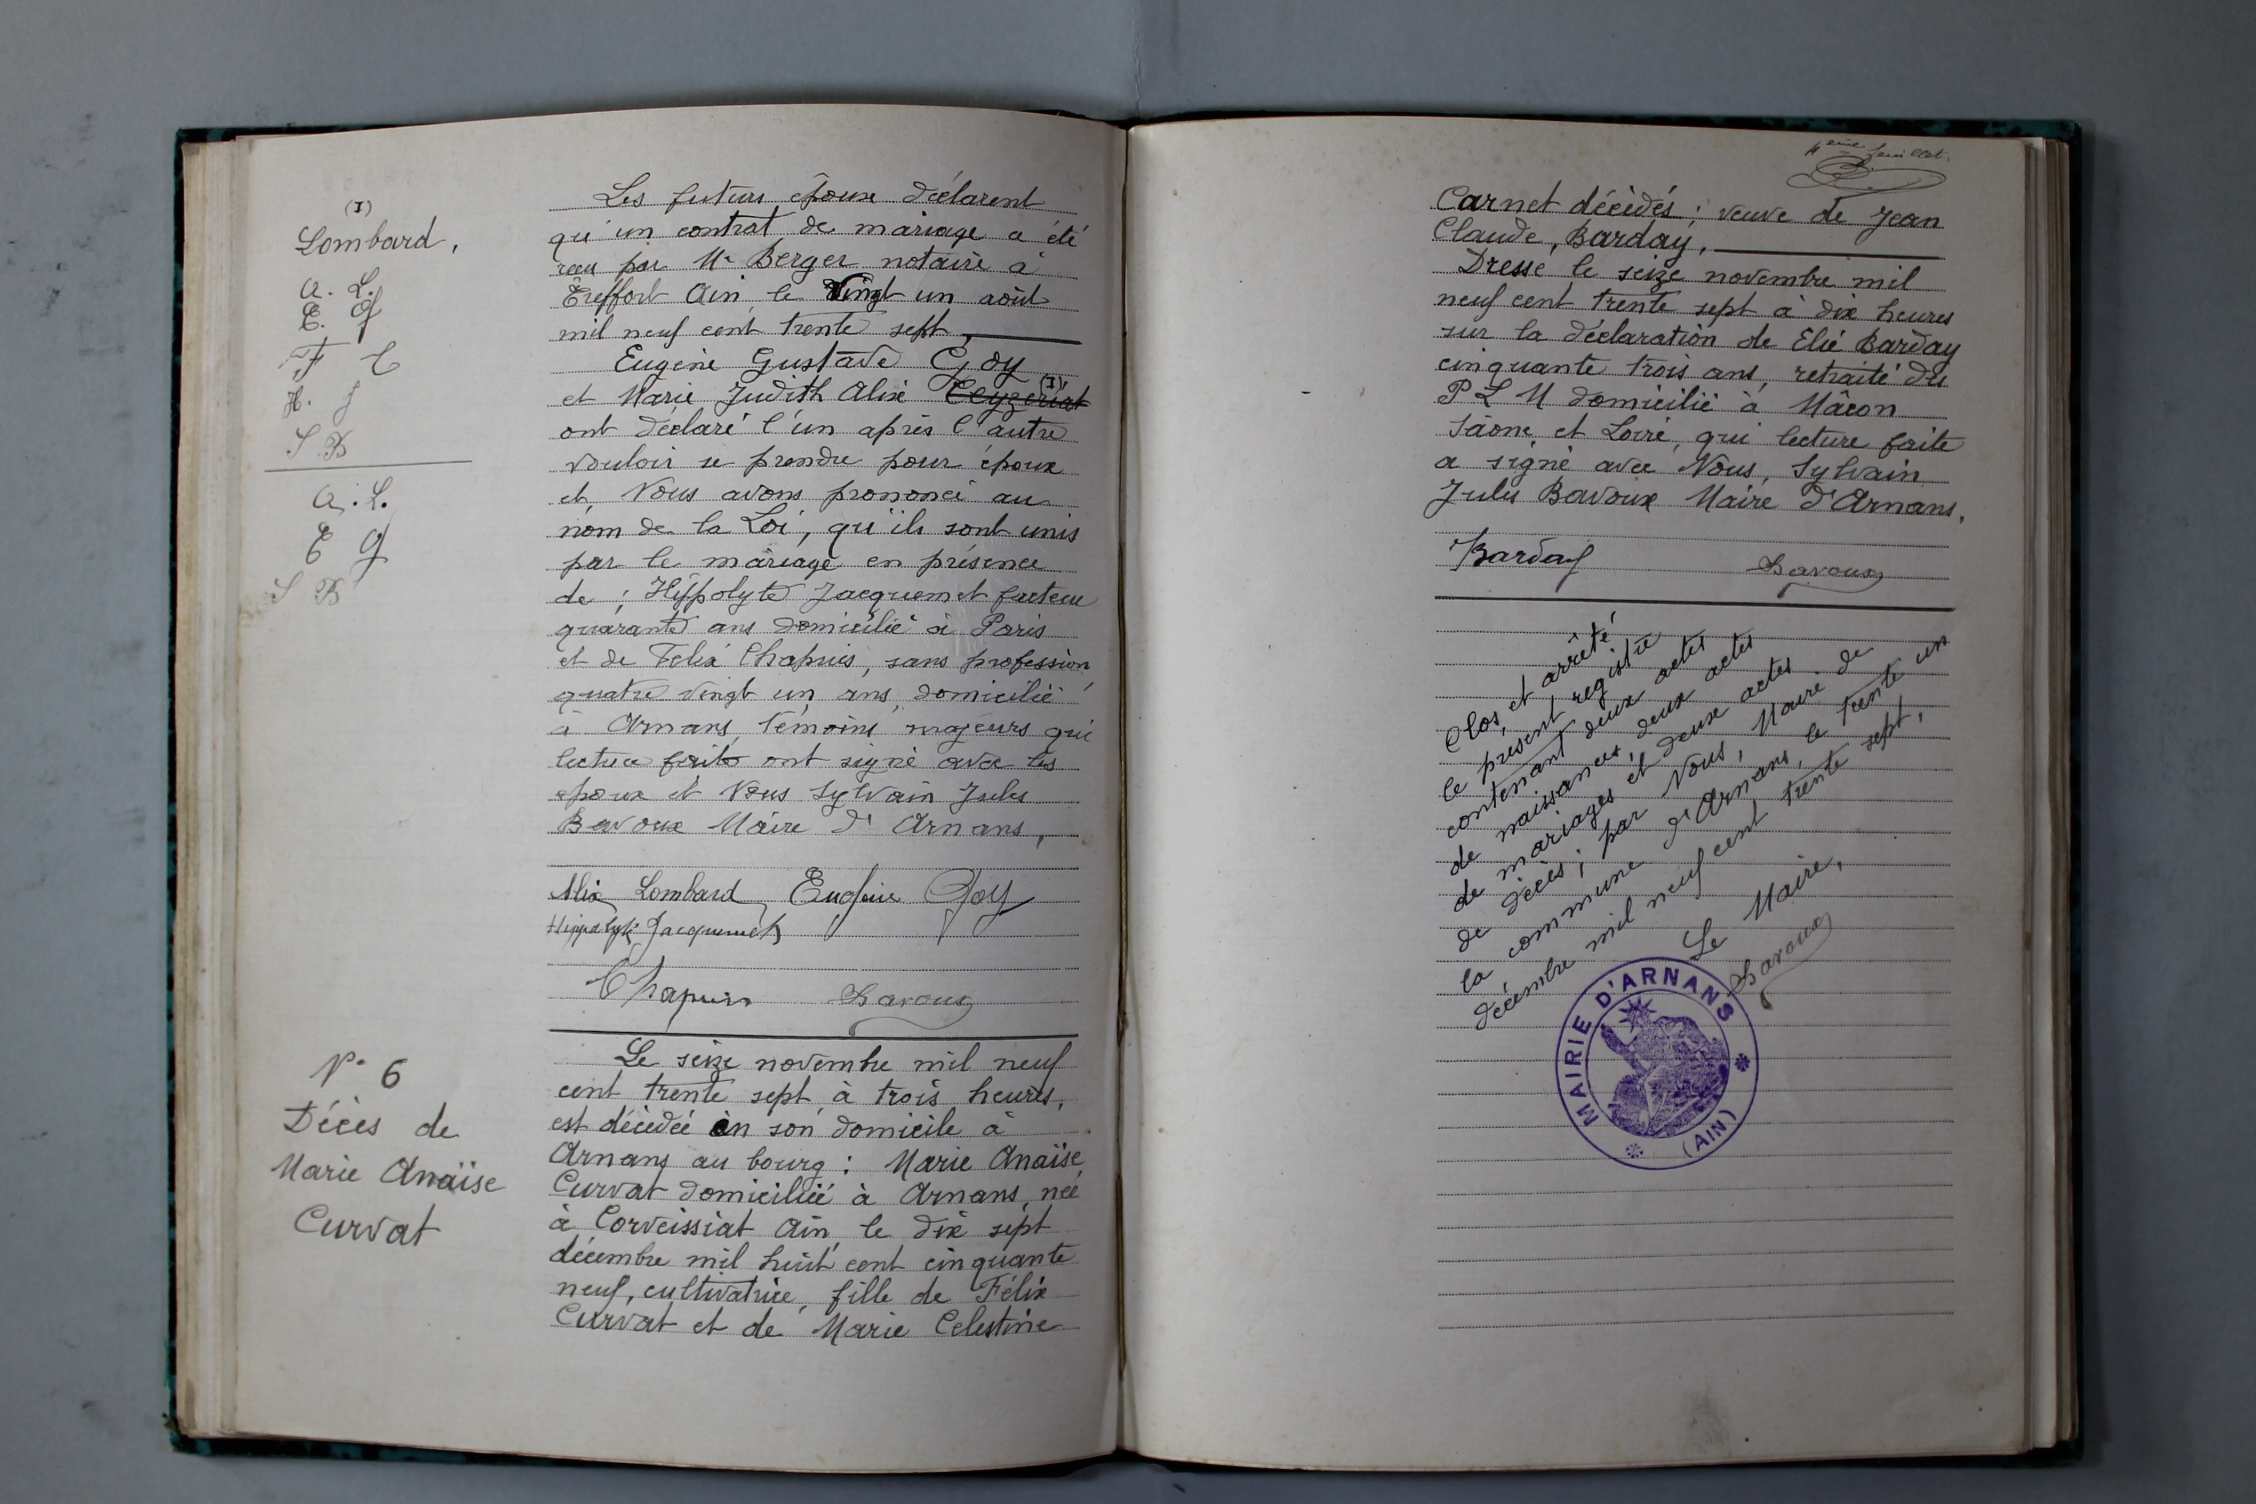 (1)
Lombard,
A. L.
E. G
F C
H. J
S B
A. L.
E G
S B
Les futurs époux déclarent
qu'un contrat de mariage a été
reçu par Me Berger notaire à
Treffort Ain, le vingt un août
mil neuf cent trente sept,
Eugène Gustave Goy
et Marie Judith Alix Ceyzeriat (1)
ont déclaré l'un après l'autre
vouloir se prendre pour époux
et, Nous avons prononcé au
nom de la Loi, qu'ils sont unis
par le mariage en présence
de ; Hippolyte Jacquemet facteur
quarante ans domicilié à Paris
et de Felix Chapuis, sans profession
quatre vingt un ans, domicilié
à Arnans, témoins majeurs qui
lecture faite ont signé avec les
époux et Nous Sylvain Jules
Bavoux Maire d'Arnans,
Alix Lombard Eugène Goy
Hippolyte Jacquemet
Chapuis Bavoux
N° 6
Décès de
Marie Anaïse
Curvat
Le seize novembre mil neuf
cent trente sept, à trois heures,
est décédée en son domicile à
Arnans au bourg : Marie Anaïse
Curvat domiciliée à Arnans, née
à Corveissiat Ain, le dix sept
décembre mil huit cent cinquante
neuf, cultivatrice, fille de Félix
Curvat et de Marie Celestine
4eme feuillet.
Carnet décédés ; veuve de Jean
Claude, Barday,
Dressé le seize novembre mil
neuf cent trente sept à dix heures
sur la déclaration de Elie Barday
cinquante trois ans, retraité du
P L M domicilié à Mâcon
Sâone et Loire, qui lecture faite
a signé avec Nous, Sylvain
Jules Bavoux Maire d'Arnans,
Barday Bavoux
Clos, et arrêté
le présent registre
contenant deux actes
de naissances, deux actes
de mariages et deux actes
de décès ; par Nous, Maire de
la commune d'Arnans, le trente un
décembre mil neuf cent trente sept,
Le Maire,
Bavoux
MAIRIE D'ARNANS
(AIN)